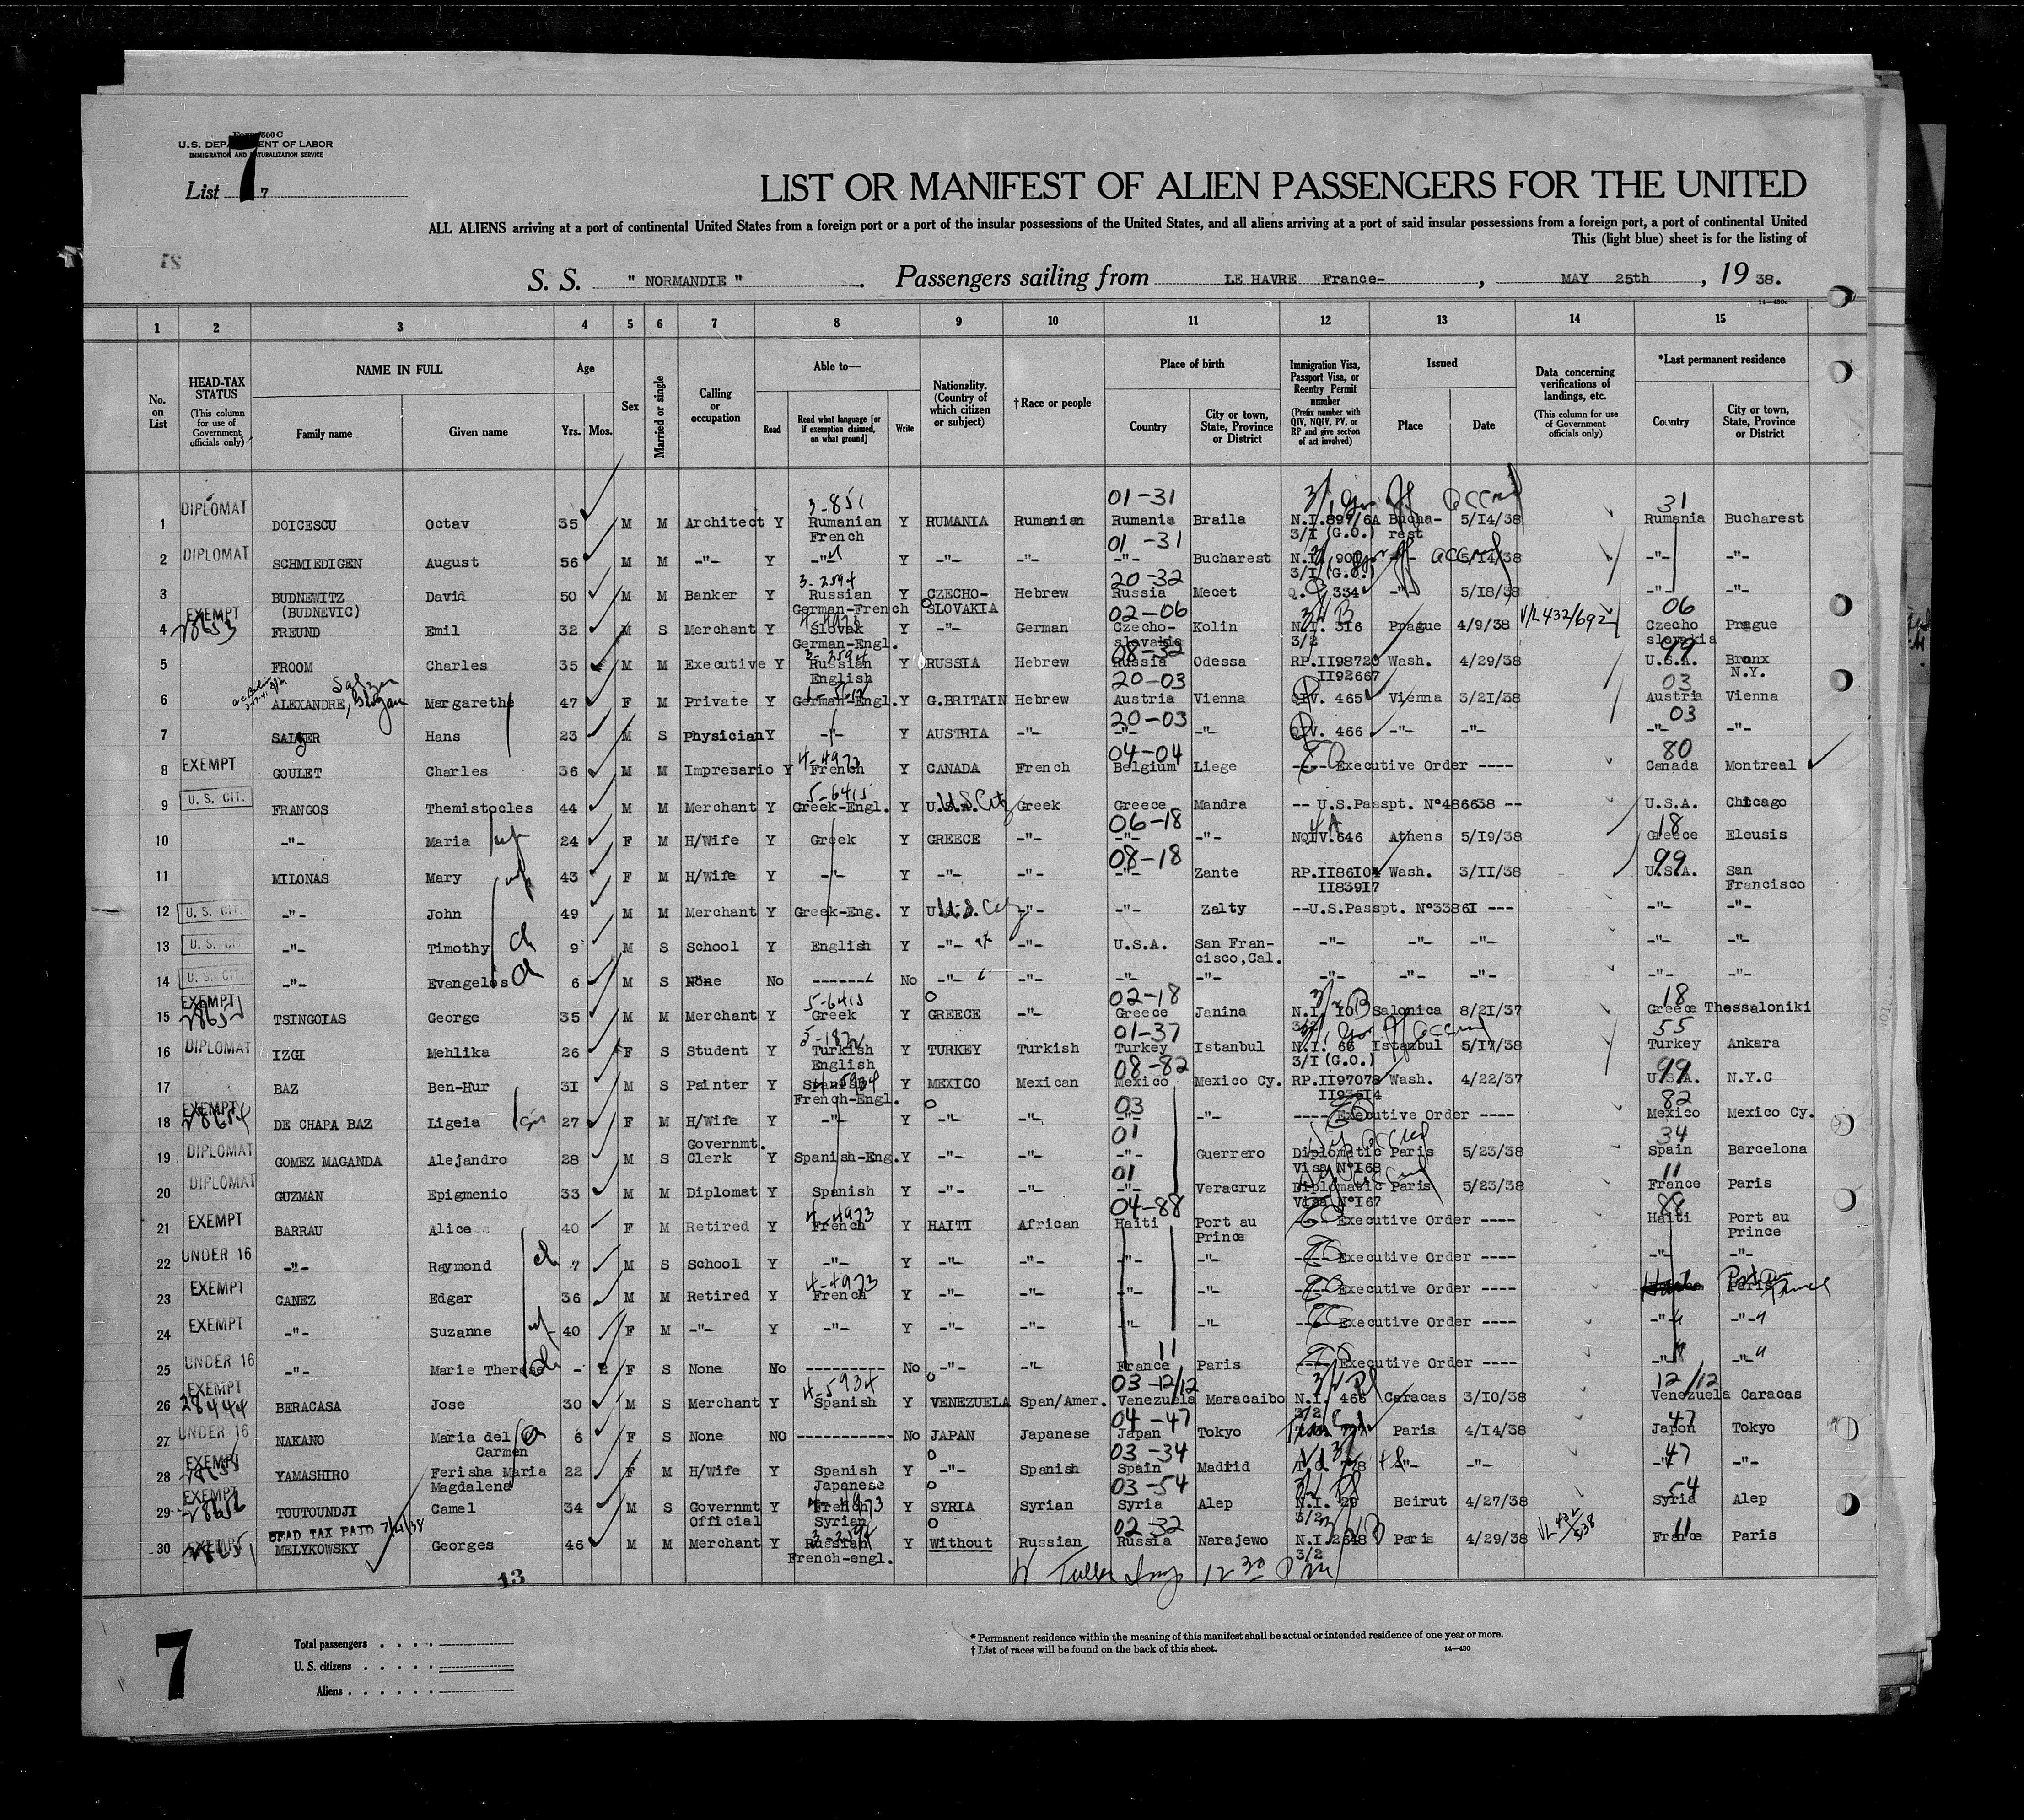 Form 500 C
U.S. DEPARTMENT OF LABOR
IMMIGRATION AND NATURALIZATION SERVICE
List 7
7
LIST OR MANIFEST OF ALIEN PASSENGERS FOR THE UNITED
ALL ALIENS arriving at a port of continental United States from a foreign port or a port of the insular possessions of the United States, and all aliens arriving at a port of said insular possessions from a foreign port, a port of continental United
This (light blue) sheet is for the listing of
S. S. " NORMANDIE " . Passengers sailing from LE HAVRE France- , MAY 25th , 19 38.
1 2 3 4 5 6 7 8 9 10 11 12 13 14 15
No. on List
HEAD-TAX STATUS (This column for use of Government officials only)
NAME IN FULL Family name Given name
Age Yrs. Mos.
Sex
Married or single
Calling or occupation
Able to— Read Read what language [or if exemption claimed, on what ground] Write
Nationality. (Country of which citizen or subject)
† Race or people
Place of birth Country City or town, State, Province or District
Immigration Visa, Passport Visa, or Reentry Permit number (Prefix number with QIV, NQIV, PV, or RP and give section of act involved)
Issued Place Date
Data concerning verifications of landings, etc. (This column for use of Government officials only)
*Last permanent residence Country City or town, State, Province or District
3-851 01-31 31
1 DIPLOMAT DOICESCU Octav 35 M M Architect Y Rumanian French Y RUMANIA Rumanian Rumania Braila N.I.897/6A 3/I (G.O.) Bucha-rest 5/14/38 Rumania Bucharest
01-31
2 DIPLOMAT SCHMIEDIGEN August 56 M M -"- Y -"- Y -"- -"- -"- Bucharest 3/I (G.O.) 5/14/38 -"- -"-
3-2594 20-32
3 BUDNEWITZ (BUDNEVIC) David 50 M M Banker Y Russian German-French Y CZECHO-SLOVAKIA Hebrew Russia Mecet 334 -"- 5/18/38 -"- -"-
02-06 06
4 EXEMPT 28653 FREUND Emil 32 M S Merchant Y Slovak German-Engl. Y -"- German Czecho-slovakia Kolin N.I. 316 3/2 Prague 4/9/38 V/L 432/692 Czecho slovakia Prague
3-2594 08-32 99
5 FROOM Charles 35 M M Executive Y Russian English Y RUSSIA Hebrew Russia Odessa RP.II98720 II92667 Wash. 4/29/38 U.S.A. Bronx N.Y.
20-03 03
6 ALEXANDRE, Margarethe 47 F M Private Y German-Engl. Y G.BRITAIN Hebrew Austria Vienna QIV. 465 Vienna 3/21/38 Austria Vienna
20-03 03
7 Hans 23 M S Physician Y -"- Y AUSTRIA -"- -"- -"- QIV. 466 -"- -"- -"- -"-
4-4973 04-04 80
8 EXEMPT GOULET Charles 36 M M Impresario Y French Y CANADA French Belgium Liege Executive Order ---- Canada Montreal
5-6415
9 U. S. CIT. FRANGOS Themistocles 44 M M Merchant Y Greek-Engl. Y U.S.A. U.S. Cit Greek Greece Mandra -- U.S.Passpt. N°486638 -- U.S.A. Chicago
06-18 18
10 -"- Maria wf 24 F M H/Wife Y Greek Y GREECE -"- -"- -"- NQIV.646 Athens 5/19/38 Greece Eleusis
08-18 99
11 MILONAS Mary wf 43 F M H/Wife Y -"- Y -"- -"- -"- Zante RP.II86104 II83917 Wash. 3/11/38 U.S.A. San Francisco
12 U. S. CIT. -"- John 49 M M Merchant Y Greek-Eng. Y U.S.A. -"- -"- Zalty --U.S.Passpt. N°33861 --- -"- -"-
13 U. S. CIT -"- Timothy ch 9 M S School Y English Y -"- -"- U.S.A. San Fran-cisco,Cal. -"- -"- -"- -"- -"-
14 U. S. CIT. -"- Evangelos ch 6 M S None No ------- No -"- -"- -"- -"- -"- -"- -"- -"- -"-
5-6415 02-18 18
15 EXEMPT 28652 TSINGOIAS George 35 M M Merchant Y Greek Y GREECE -"- Greece Janina N.I. 10 3/2 Salonica 8/21/37 Greece Thessaloniki
01-37 55
16 DIPLOMAT IZGI Mehlika 26 F S Student Y Turkish English Y TURKEY Turkish Turkey Istanbul N.I. 66 3/I (G.O.) Istanbul 5/17/38 Turkey Ankara
08-82 99
17 BAZ Ben-Hur 31 M S Painter Y Spanish French-Engl. Y MEXICO Mexican Mexico Mexico Cy. RP.II97078 Wash. 4/22/37 U.S.A. N.Y.C
03 82
18 EXEMPT 28654 DE CHAPA BAZ Ligeia 27 F M H/Wife Y -"- Y -"- -"- -"- -"- ---- Executive Order ---- Mexico Mexico Cy.
01 34
19 DIPLOMAT GOMEZ MAGANDA Alejandro 28 M S Governmt. Clerk Y Spanish-Eng. Y -"- -"- -"- Guerrero Diplomatic Visa N°168 Paris 5/23/38 Spain Barcelona
01 11
20 DIPLOMAT GUZMAN Epigmenio 33 M M Diplomat Y Spanish Y -"- -"- -"- Veracruz Diplomatic Visa N°167 Paris 5/23/38 France Paris
4-4973 04-88 88
21 EXEMPT BARRAU Alice 40 F M Retired Y French Y HAITI African Haiti Port au Prince Executive Order ---- Haiti Port au Prince
22 UNDER 16 -"- Raymond ch 7 M S School Y -"- Y -"- -"- -"- -"- Executive Order ---- -"- -"-
4-4973
23 EXEMPT CANEZ Edgar 36 M M Retired Y French Y -"- -"- -"- -"- Executive Order ---- Paris Port au Prince
24 EXEMPT -"- Suzanne wf 40 F M -"- Y -"- Y -"- -"- -"- -"- Executive Order ---- -"- -"-
11
25 UNDER 16 -"- Marie Therese ch - 2 F S None No ---------- No -"- -"- France Paris Executive Order ---- -"- -"-
4-5934 03-12/12 12/12
26 EXEMPT 28444 BERACASA Jose 30 M S Merchant Y Spanish Y VENEZUELA Span/Amer. Venezuela Maracaibo N.I. 465 3/2 Caracas 3/10/38 Venezuela Caracas
04-47 47
27 UNDER 16 NAKANO Maria del Carmen ch 6 F S None NO ----------- No JAPAN Japanese Japan Tokyo Paris 4/14/38 Japon Tokyo
03-34 47
28 EXEMPT YAMASHIRO Ferisha Maria Magdalena 22 F M H/Wife Y Spanish Japanese Y -"- Spanish Spain Madrid -"- -"- -"- -"-
03-54 54
29 EXEMPT 28656 TOUTOUNDJI Camel 34 M S Governmt Official Y French Syrian Y SYRIA Syrian Syria Alep N.I. 29 3/2 Beirut 4/27/38 Syria Alep
HEAD TAX PAID 7/21/38 3-2594 02-32 11
30 EXEMPT 28651 MELYKOWSKY Georges 46 M M Merchant Y Russian French-engl. Y Without Russian Russia Narajewo N.I.2648 3/2 Paris 4/29/38 France Paris
12 30 PM
13
7
Total passengers . . . .
U. S. citizens . . . . .
Aliens . . . . . .
* Permanent residence within the meaning of this manifest shall be actual or intended residence of one year or more.
† List of races will be found on the back of this sheet.
14—430